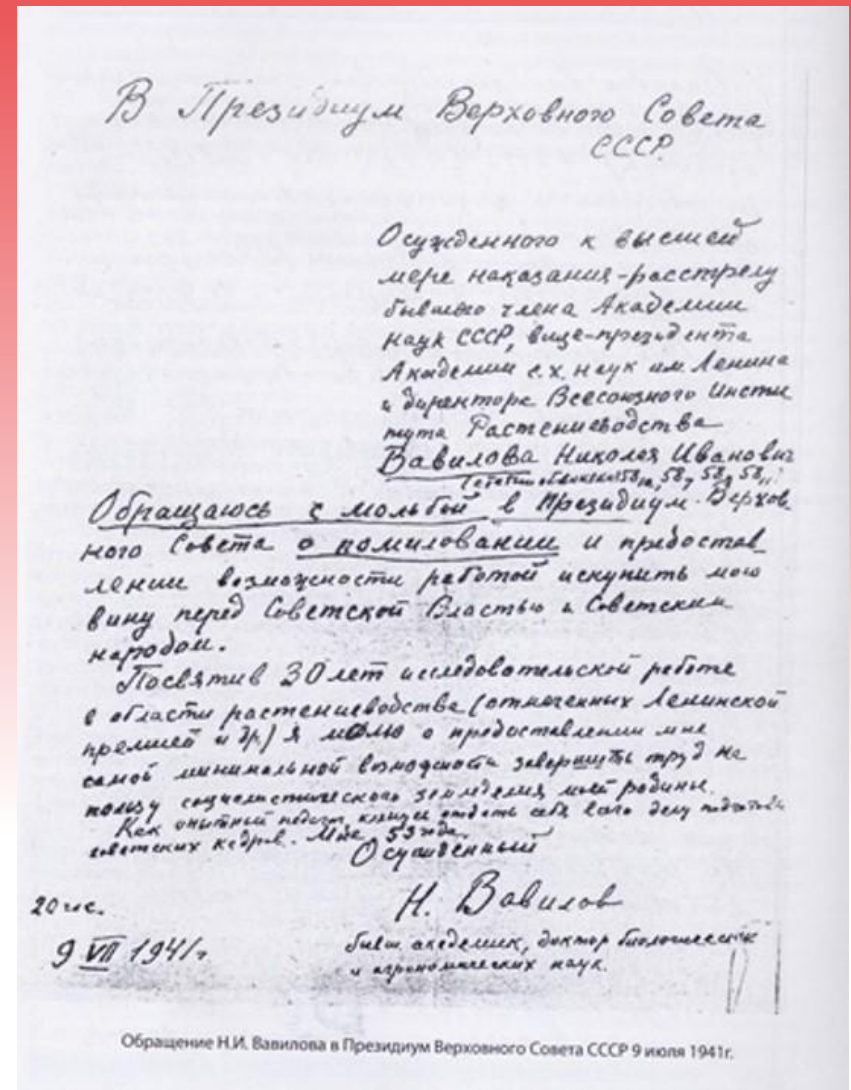 В Президиум Верховного Совета
СССР.
Осужденного к высшей
мере наказания-расстрелу
бывшего члена Академии
наук СССР, вице-президента
Академии с.х. наук им. Ленина
и директора Всесоюзного Инсти
тута Растениеводства
Вавилова Николая Ивановича
58
Обращаюсь с мольбой в Президиум Верхов
ного Совета о помиловании и предостав
лении возможности работой искупить мою
вину перед Советской Властью и Советским
народом.
Посвятив 30 лет исследовательской работе
в области растениеводства (отмеченных Ленинской
премией и др) я молю о предоставлении мне
самой минимальной возможности завершить труд на
пользу социалистического земледелия моей родины.
Как опытный педагог, клянусь отдать себя всего делу подготовки
советских кадров. Мне 53 года.
Осужденный
20 час.
Н. Вавилов
9 VII 1941г
бывш. академик, доктор биологических
и агрономических наук.
Обращение Н.И. Вавилова в Президиум Верховного Совета СССР 9 июля 1941г.